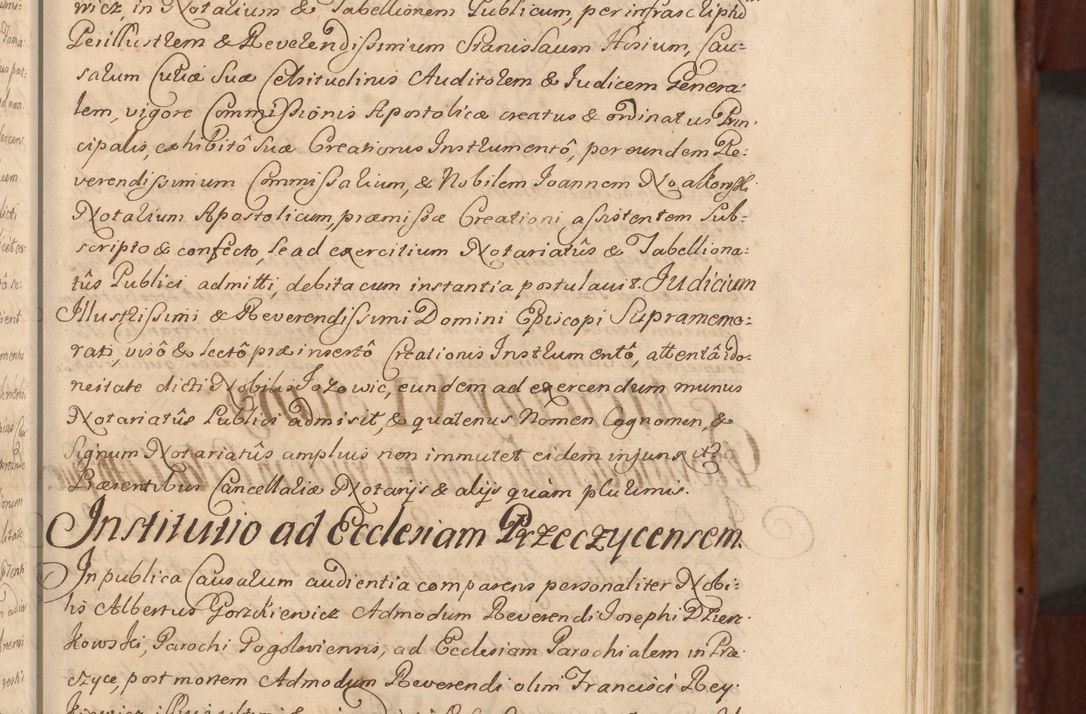 wicz, in Notarium & Tabellionem Publicum, per infrascriptū
Perillustrem & Reverendissimum Stanislaum Hosium, Cau-
sarum Curiæ Suæ Celsitudinis Auditorem & Judicem Genera-
lem, vigore Commissionis Apostolicæ creatus & ordinatus Prin-
cipalis, exhibitô Suæ Creationis Instrumentô, per eundem Re-
verendissimum Commissarium, & Nobilem Joannem
Notarium Apostolicum, præmissæ Creationi assistentem Sub-
scripto & confecto, se ad exercitium Notariatûs & Tabelliona-
tûs Publici admitti, debita cum instantia postulavit. Judicium
Illustrissimi & Reverendissimi Domini Episcopi Supramemo-
rati, visô & lectô præinsertô Creationis Instrumentô, attentâ ido-
neitate dicti Nobilis Jozowic, eundem ad exercendum munus
Notariatûs Publici admisit, & quatenus Nomen Cognomen, &
Signum Notariatûs amplius non immutet eidem injunxit
Præsentibus Cancellariæ Notarijs & alijs quàm plurimis.
Institutio ad Ecclesiam Przeczycensem.
In publica Causarum audientia comparens personaliter Nobi-
lis Albertus Gorzkiewicz Admodum Reverendi Josephi Dzier-
kowski, Parochi Pogoloviensis, ad Ecclesiam Parochialem in Prze-
czyce, post mortem Admodum Reverendi olim Francisci Rey-